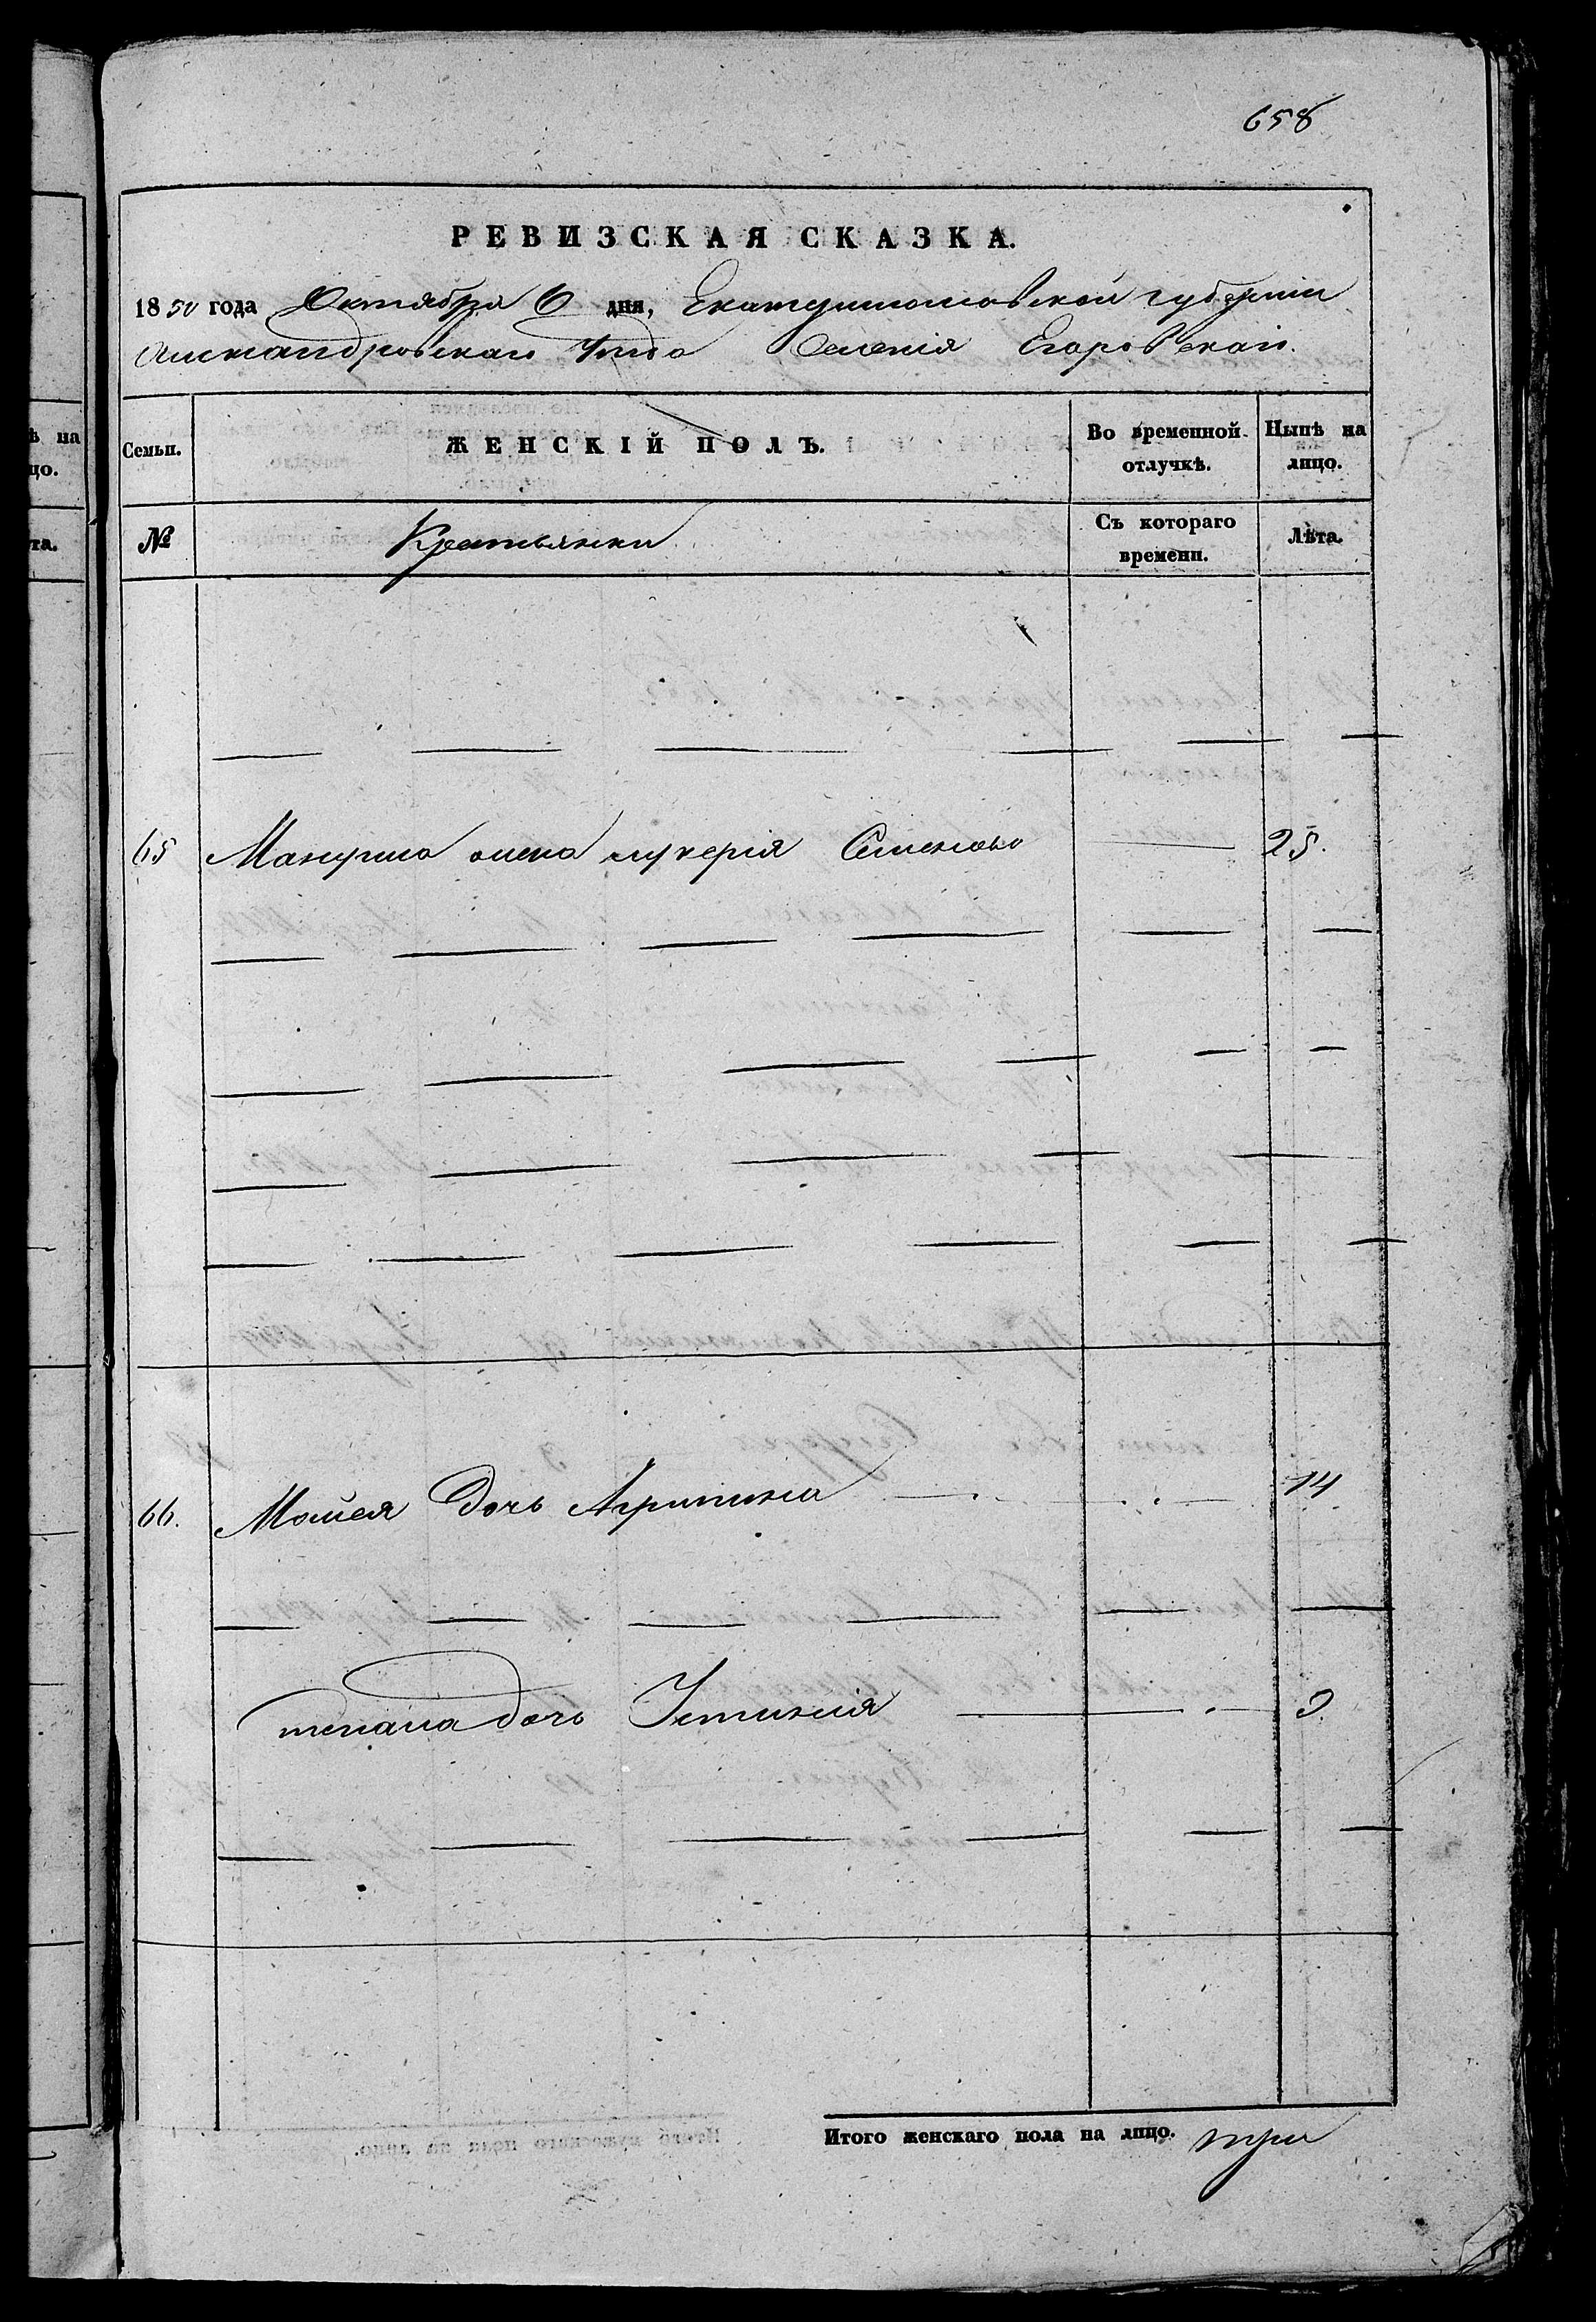 658
РЕВИЗСКАЯ СКАЗКА.
1850 года Октября 6 дня, Екатеринославской губерніи
Александровскаго Уезда Селенія Егоровскаго.
Семьи. ЖЕНСКІЙ ПОЛЪ. Во временной отлучкѣ. Нынѣ на лицо.
№ Крестьянки Съ котораго времени. Лѣта.
65 жена Лукерія Семенова 25.
66. Моисея дочь Агрипина 14
Степана дочь Устинія 9.
Итого женскаго пола на лицо. три
ѣ на
цо.
та.